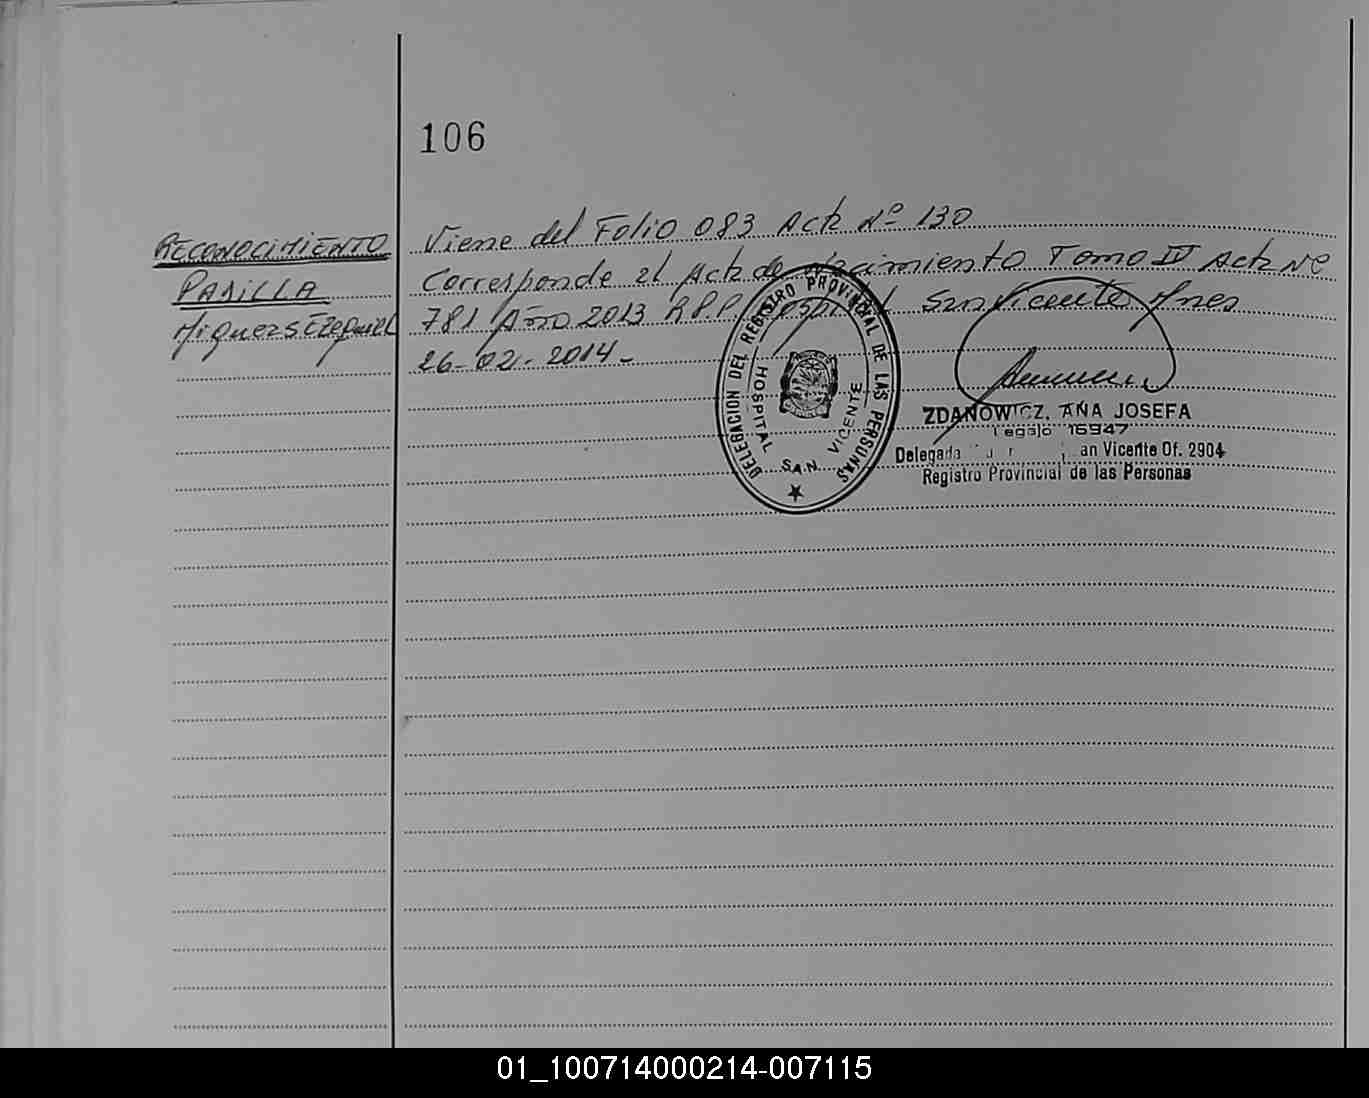 106
RECONOCIMIENTO
PADILLA
Ezequiel
Viene del Folio 083 Acta Nº 130
Corresponde al Acta de Nacimiento Tomo IV Acta Nº
781 Año 2013 R.P.P. Hospital San Vicente
26-02-2014-
DELEGACION DEL REGISTRO PROVINCIAL DE LAS PERSONAS
HOSPITAL SAN VICENTE
ZDANOWICZ, ANA JOSEFA
Legajo 16947
Delegada San Vicente Of. 2904
Registro Provincial de las Personas
01_100714000214-007115